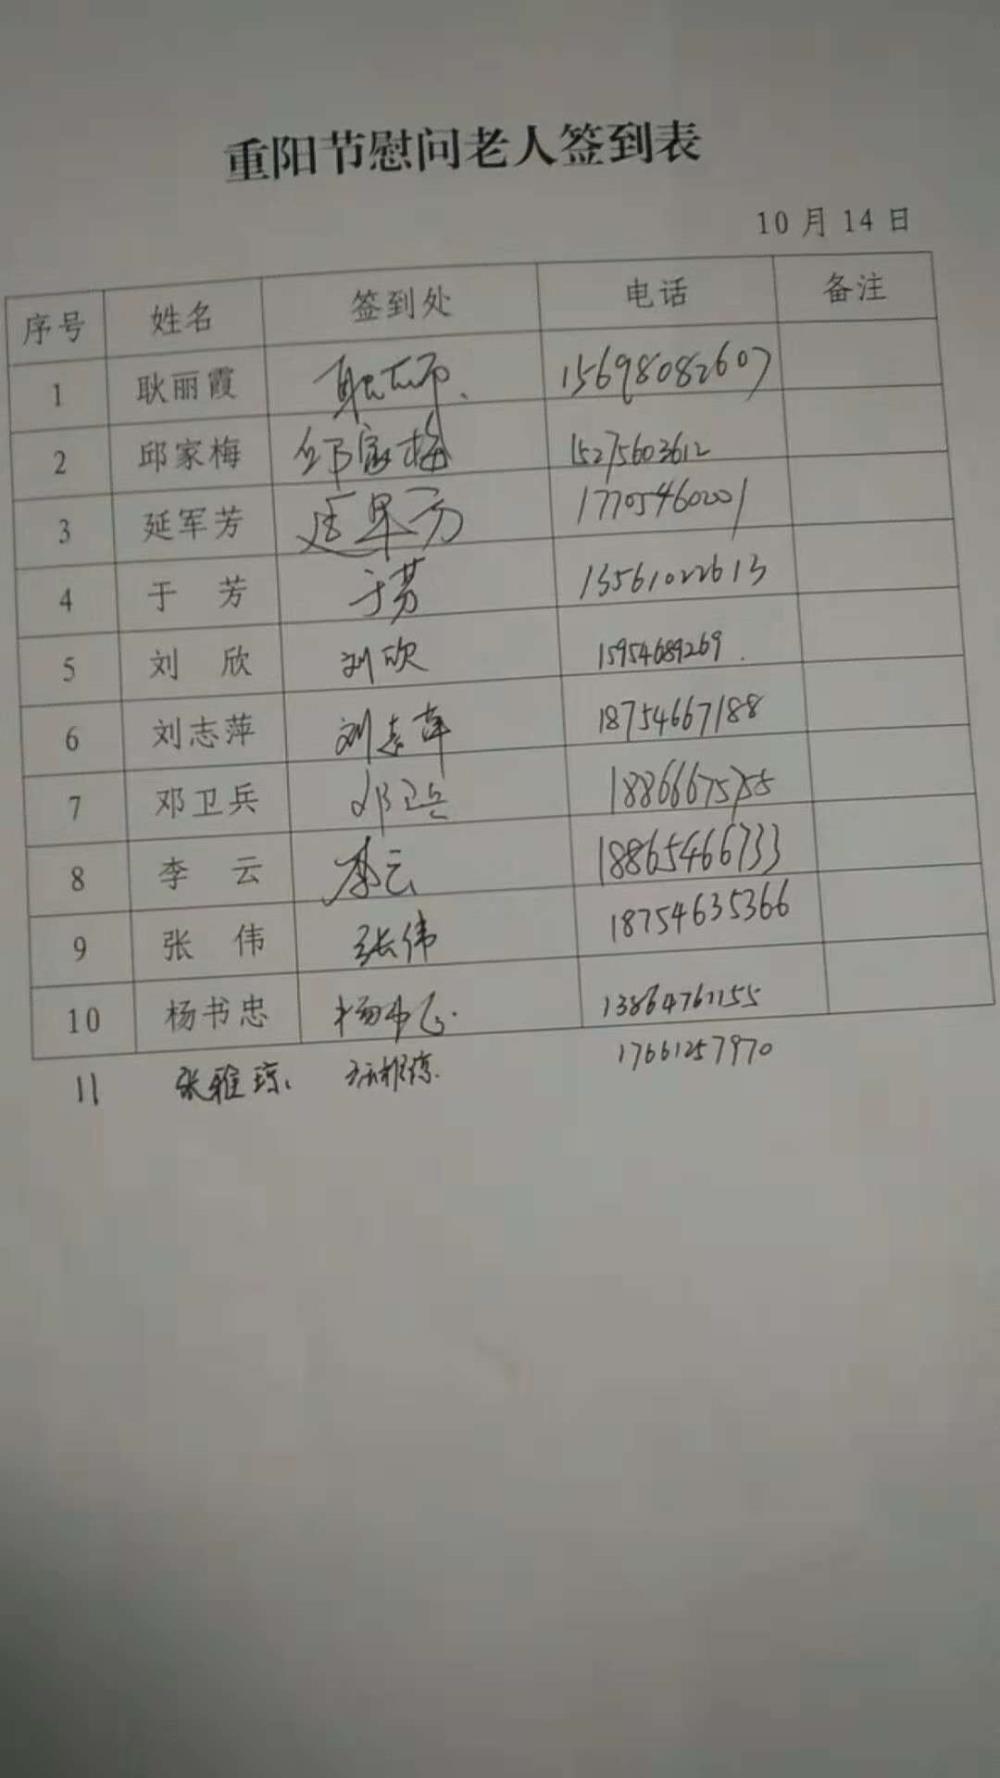 重阳节慰问老人签到表
10月14日
序号 姓名 签到处 电话 备注
1 耿丽霞 15698082607
2 邱家梅 邱家梅 15275603612
3 延军芳 延军芳 17705460201
4 于 芳 于芳 13561022613
5 刘 欣 刘欣 15954689269
6 刘志萍 刘志萍 18754667188
7 邓卫兵 邓卫兵
8 李 云 李云 18865466733
9 张 伟 张伟 18754635366
10 杨书忠 13864761155
11 张雅琼 17661257970